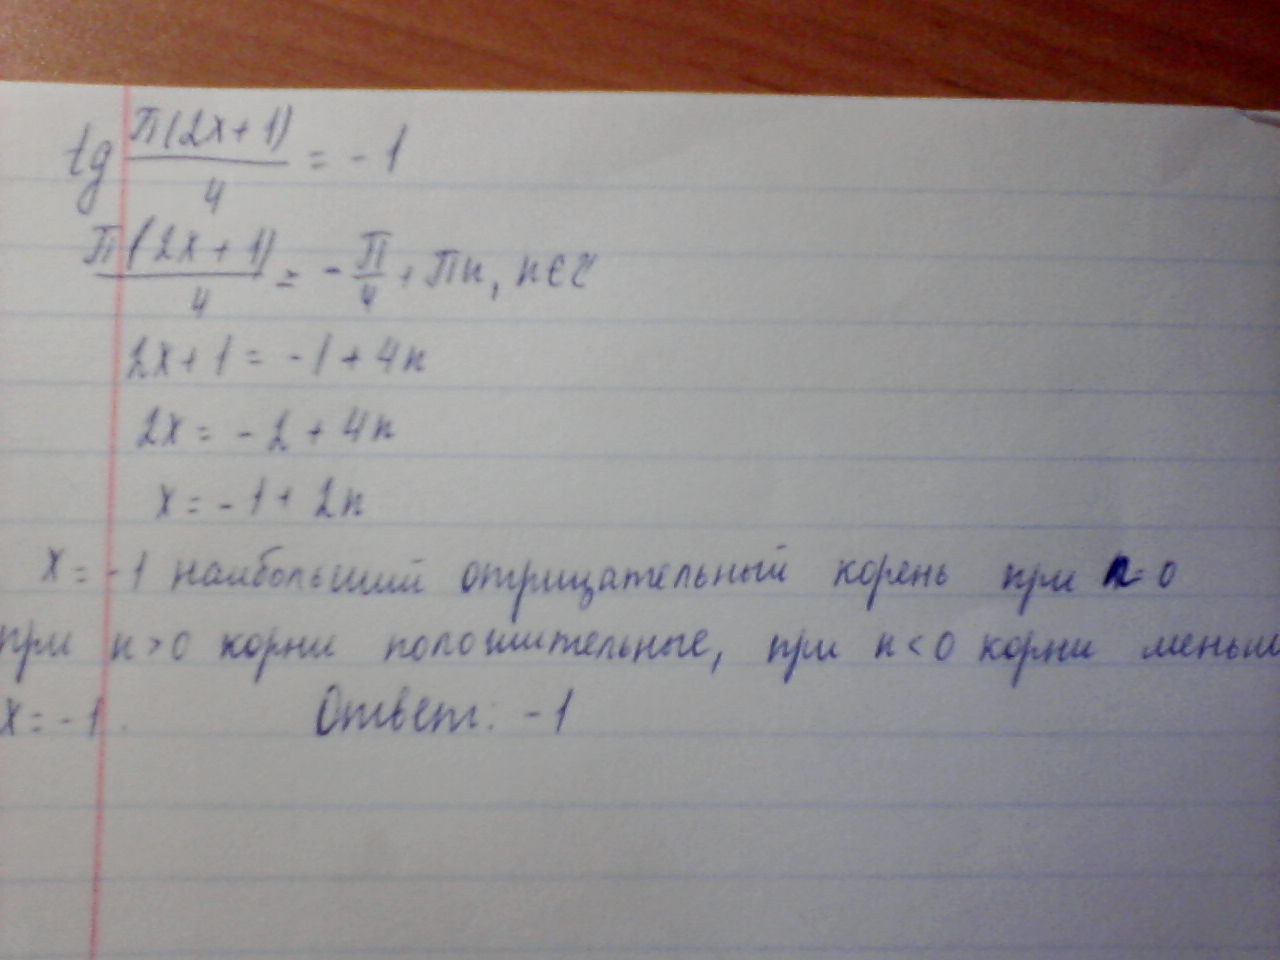 tg π(2x+1)/4 = -1
π(2x+1)/4 = -π/4 + πn, n∈Z
2x+1 = -1+4n
2x = -2+4n
x = -1+2n
x = -1 наибольший отрицательный корень при n=0
при n>0 корни положительные, при n<0 корни
x = -1. Ответ: -1